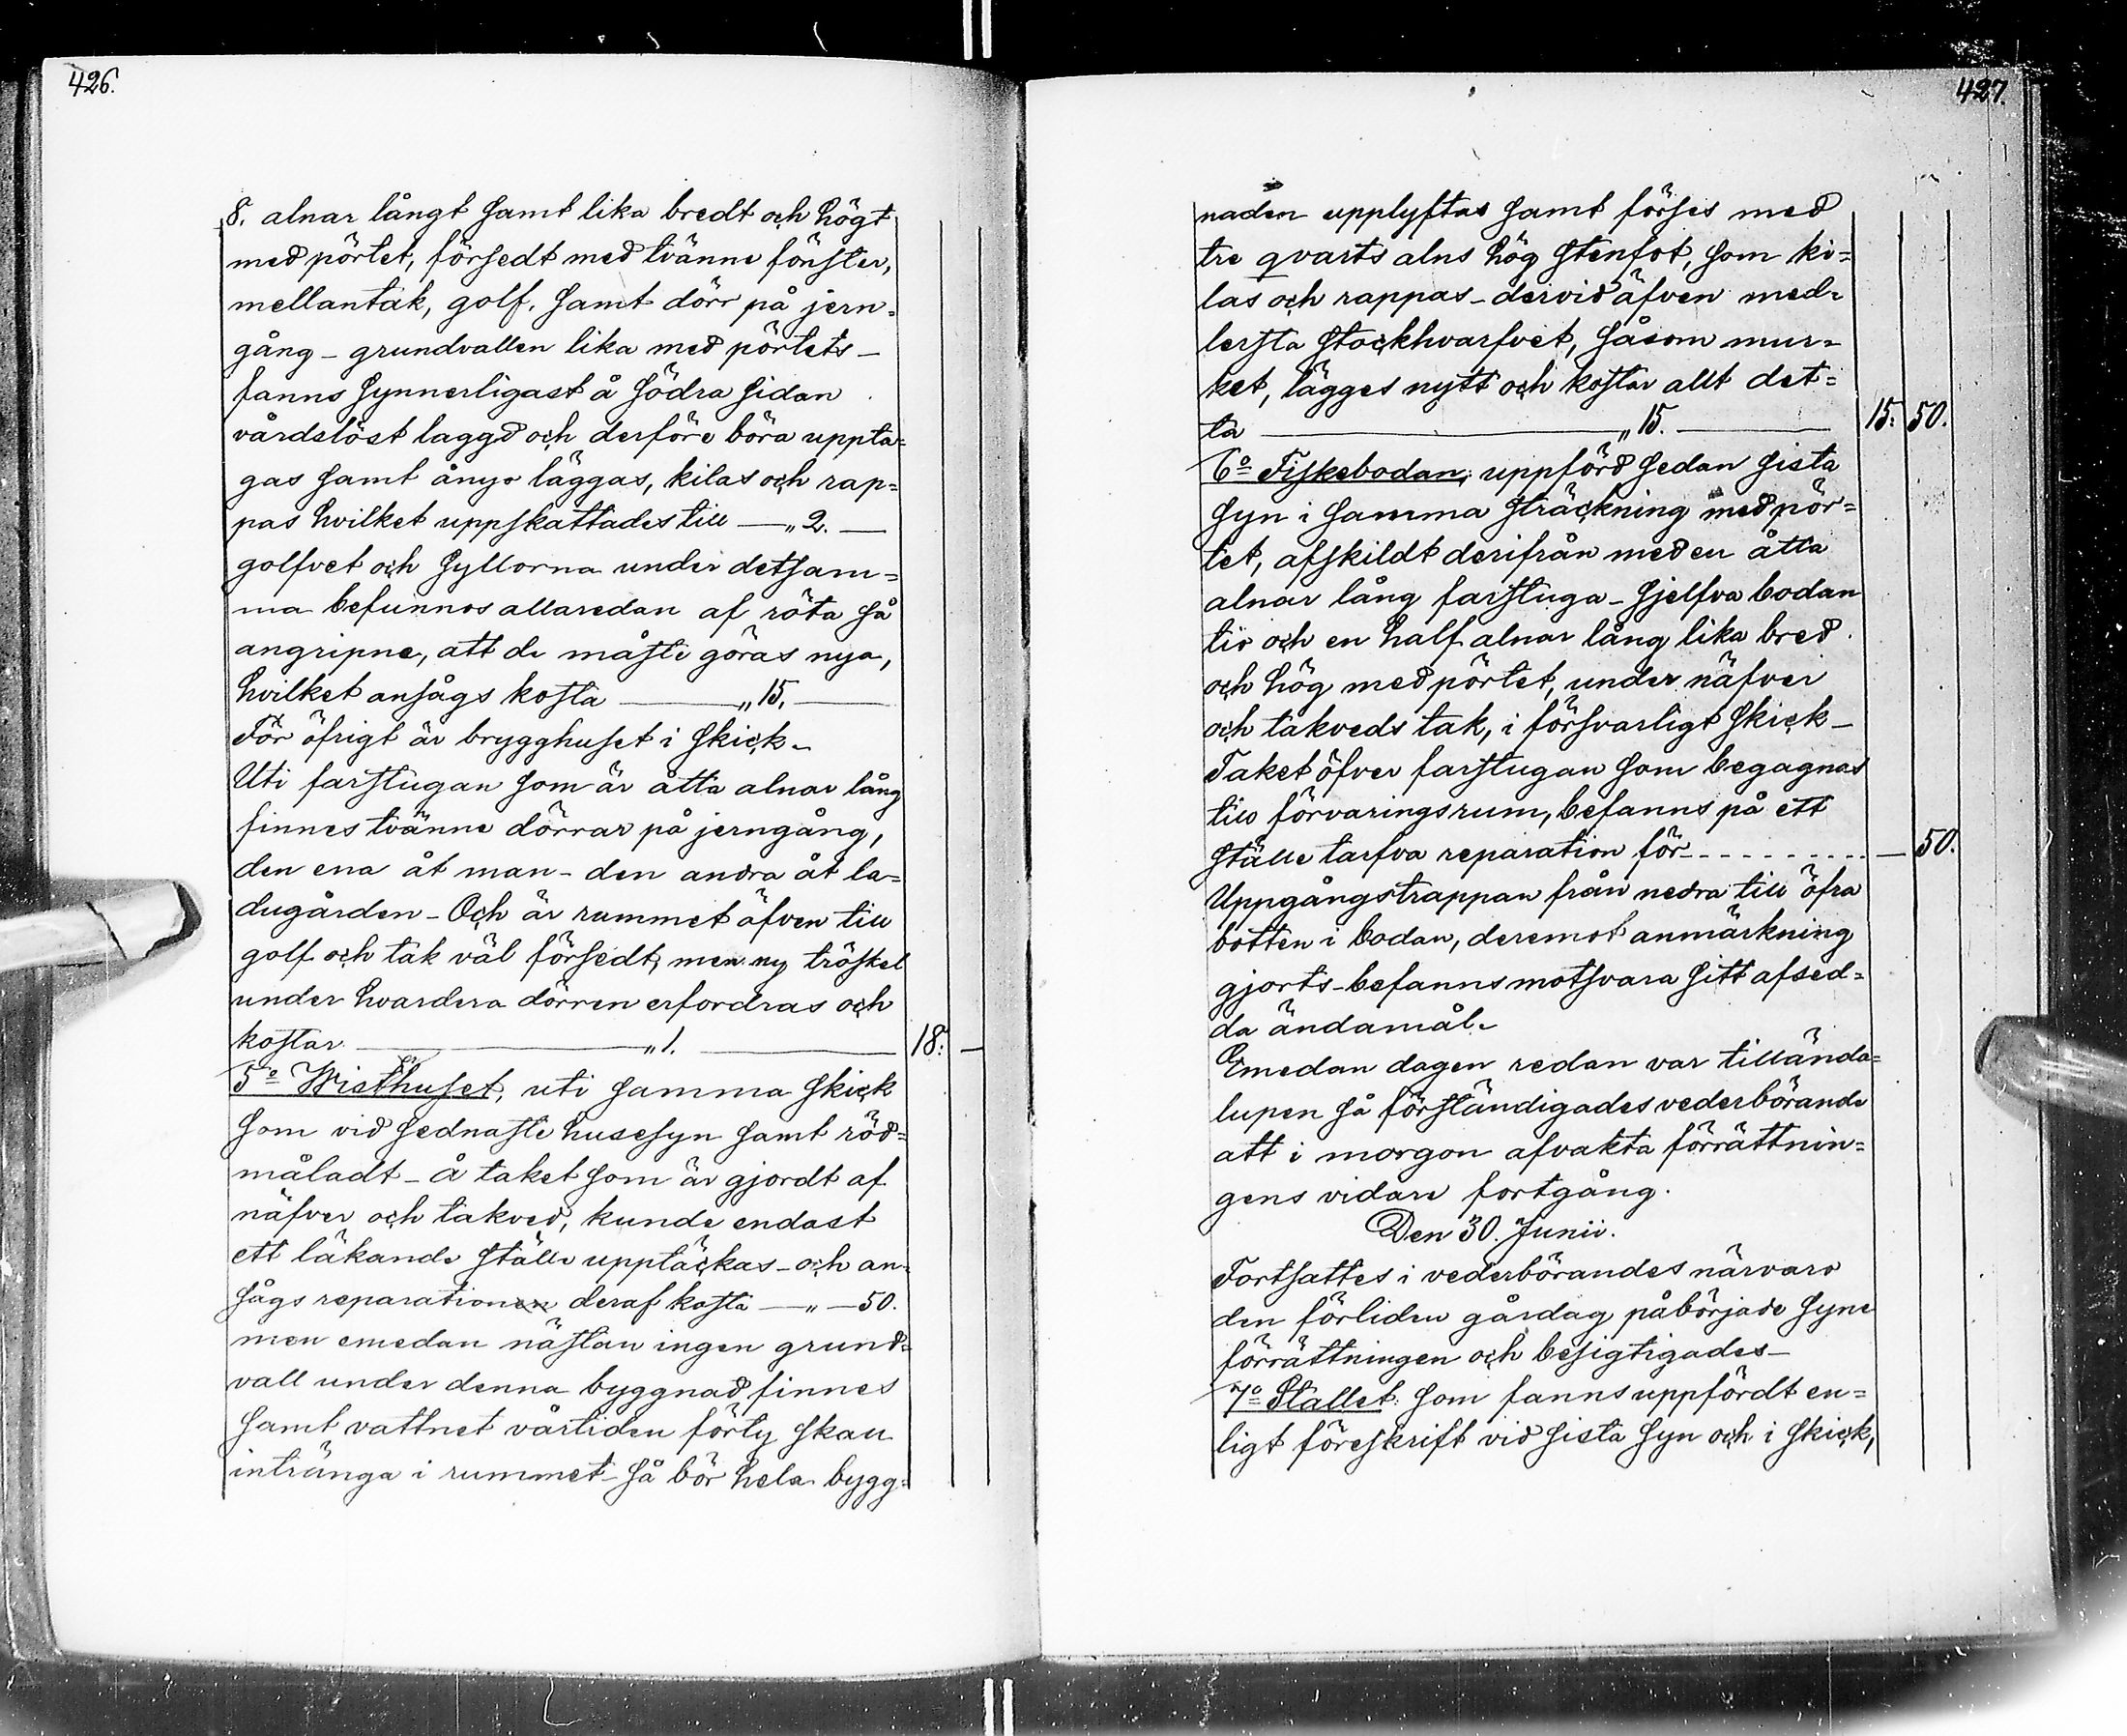 426.
8. alnar långt samt lika bredt och högt
med pörtet, försedt med tvänne fönster,
mellantak, golf, samt dörr på jern-
gång - grundvallen lika med pörtets -
fanns synnerligast å södra sidan
vårdslöst laggd och derföre böra uppta=
gas samt ånyo läggas, kilas och rap=
pas hvilket uppskattades till — „ 2. —
golfvet och syllorna under detsam=
ma befunnos allaredan af röta så
angripne, att de måste göras nya,
hvilket ansågs kosta — „ 15. —
För öfrigt är brygghuset i skick.
Uti farstugan som är åtta alnar lång
finnes tvänne dörrar på jerngång,
den ena åt man - den andra åt la=
dugården - Och är rummet äfven till
golf och tak väl försedt, men ny tröskel
under hvardera dörren erfordras och
kostar — „ 1. — 18: —
5o Wisthuset, uti samma skick
som vid sednaste husesyn samt röd=
måladt - å taket som är gjordt af
näfver och takved, kunde endast
ett läkande ställe upptäckas - och an-
sågs reparationen deraf kosta — „ — 50.
men emedan nästan ingen grund=
vall under denna byggnad finnes
samt vattnet vårtiden förty skall
intränga i rummet - så bör hela bygg=
427.
naden upplyftas samt förses med
tre qvarts alns hög stenfot, som ki=
las och rappas - dervid äfven med=
lersta stockhvarfvet, såsom mur=
ket, lägges nytt och kostar allt det=
ta — „ 15. — 15: 50.
6o Fiskebodan, uppförd sedan sista
syn i samma sträckning med pör=
tet, afskildt derifrån med en åtta
alnar lång farstuga - sjelfva bodan
tio och en half alnar lång lika bred
och hög med pörtet, under näfver
och takveds tak, i försvarligt skick -
Taket öfver farstugan som begagnas
till förvaringsrum, befanns på ett
ställe tarfva reparation för - - - - - - — 50.
Uppgångstrappan från nedra till öfra
botten i bodan, deremot anmärkning
gjorts - befanns motsvara sitt afsed=
da ändamål.
Emedan dagen redan var tillända=
lupen så förständigades vederbörande
att i morgon afvakta förrättnin=
gens vidare fortgång.
Den 30. Junii.
Fortsattes i vederbörandes närvaro
den förliden gårdag påbörjade syne
förrättningen och besigtigades -
7o Stallet som fanns uppfördt en=
ligt föreskrift vid sista syn och i skick,